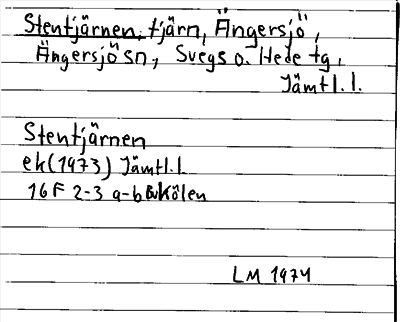 Stentjärnen, tjärn, Ängersjö,
Ängersjö sn, Svegs o. Hede tg,
Jämtl. l.
Stentjärnen
ek (1973) Jämtl. l
16 F 2-3 a-b Kölen
LM 1974